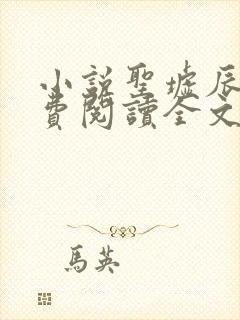 小說聖墟辰
費閱讀全文
馬英